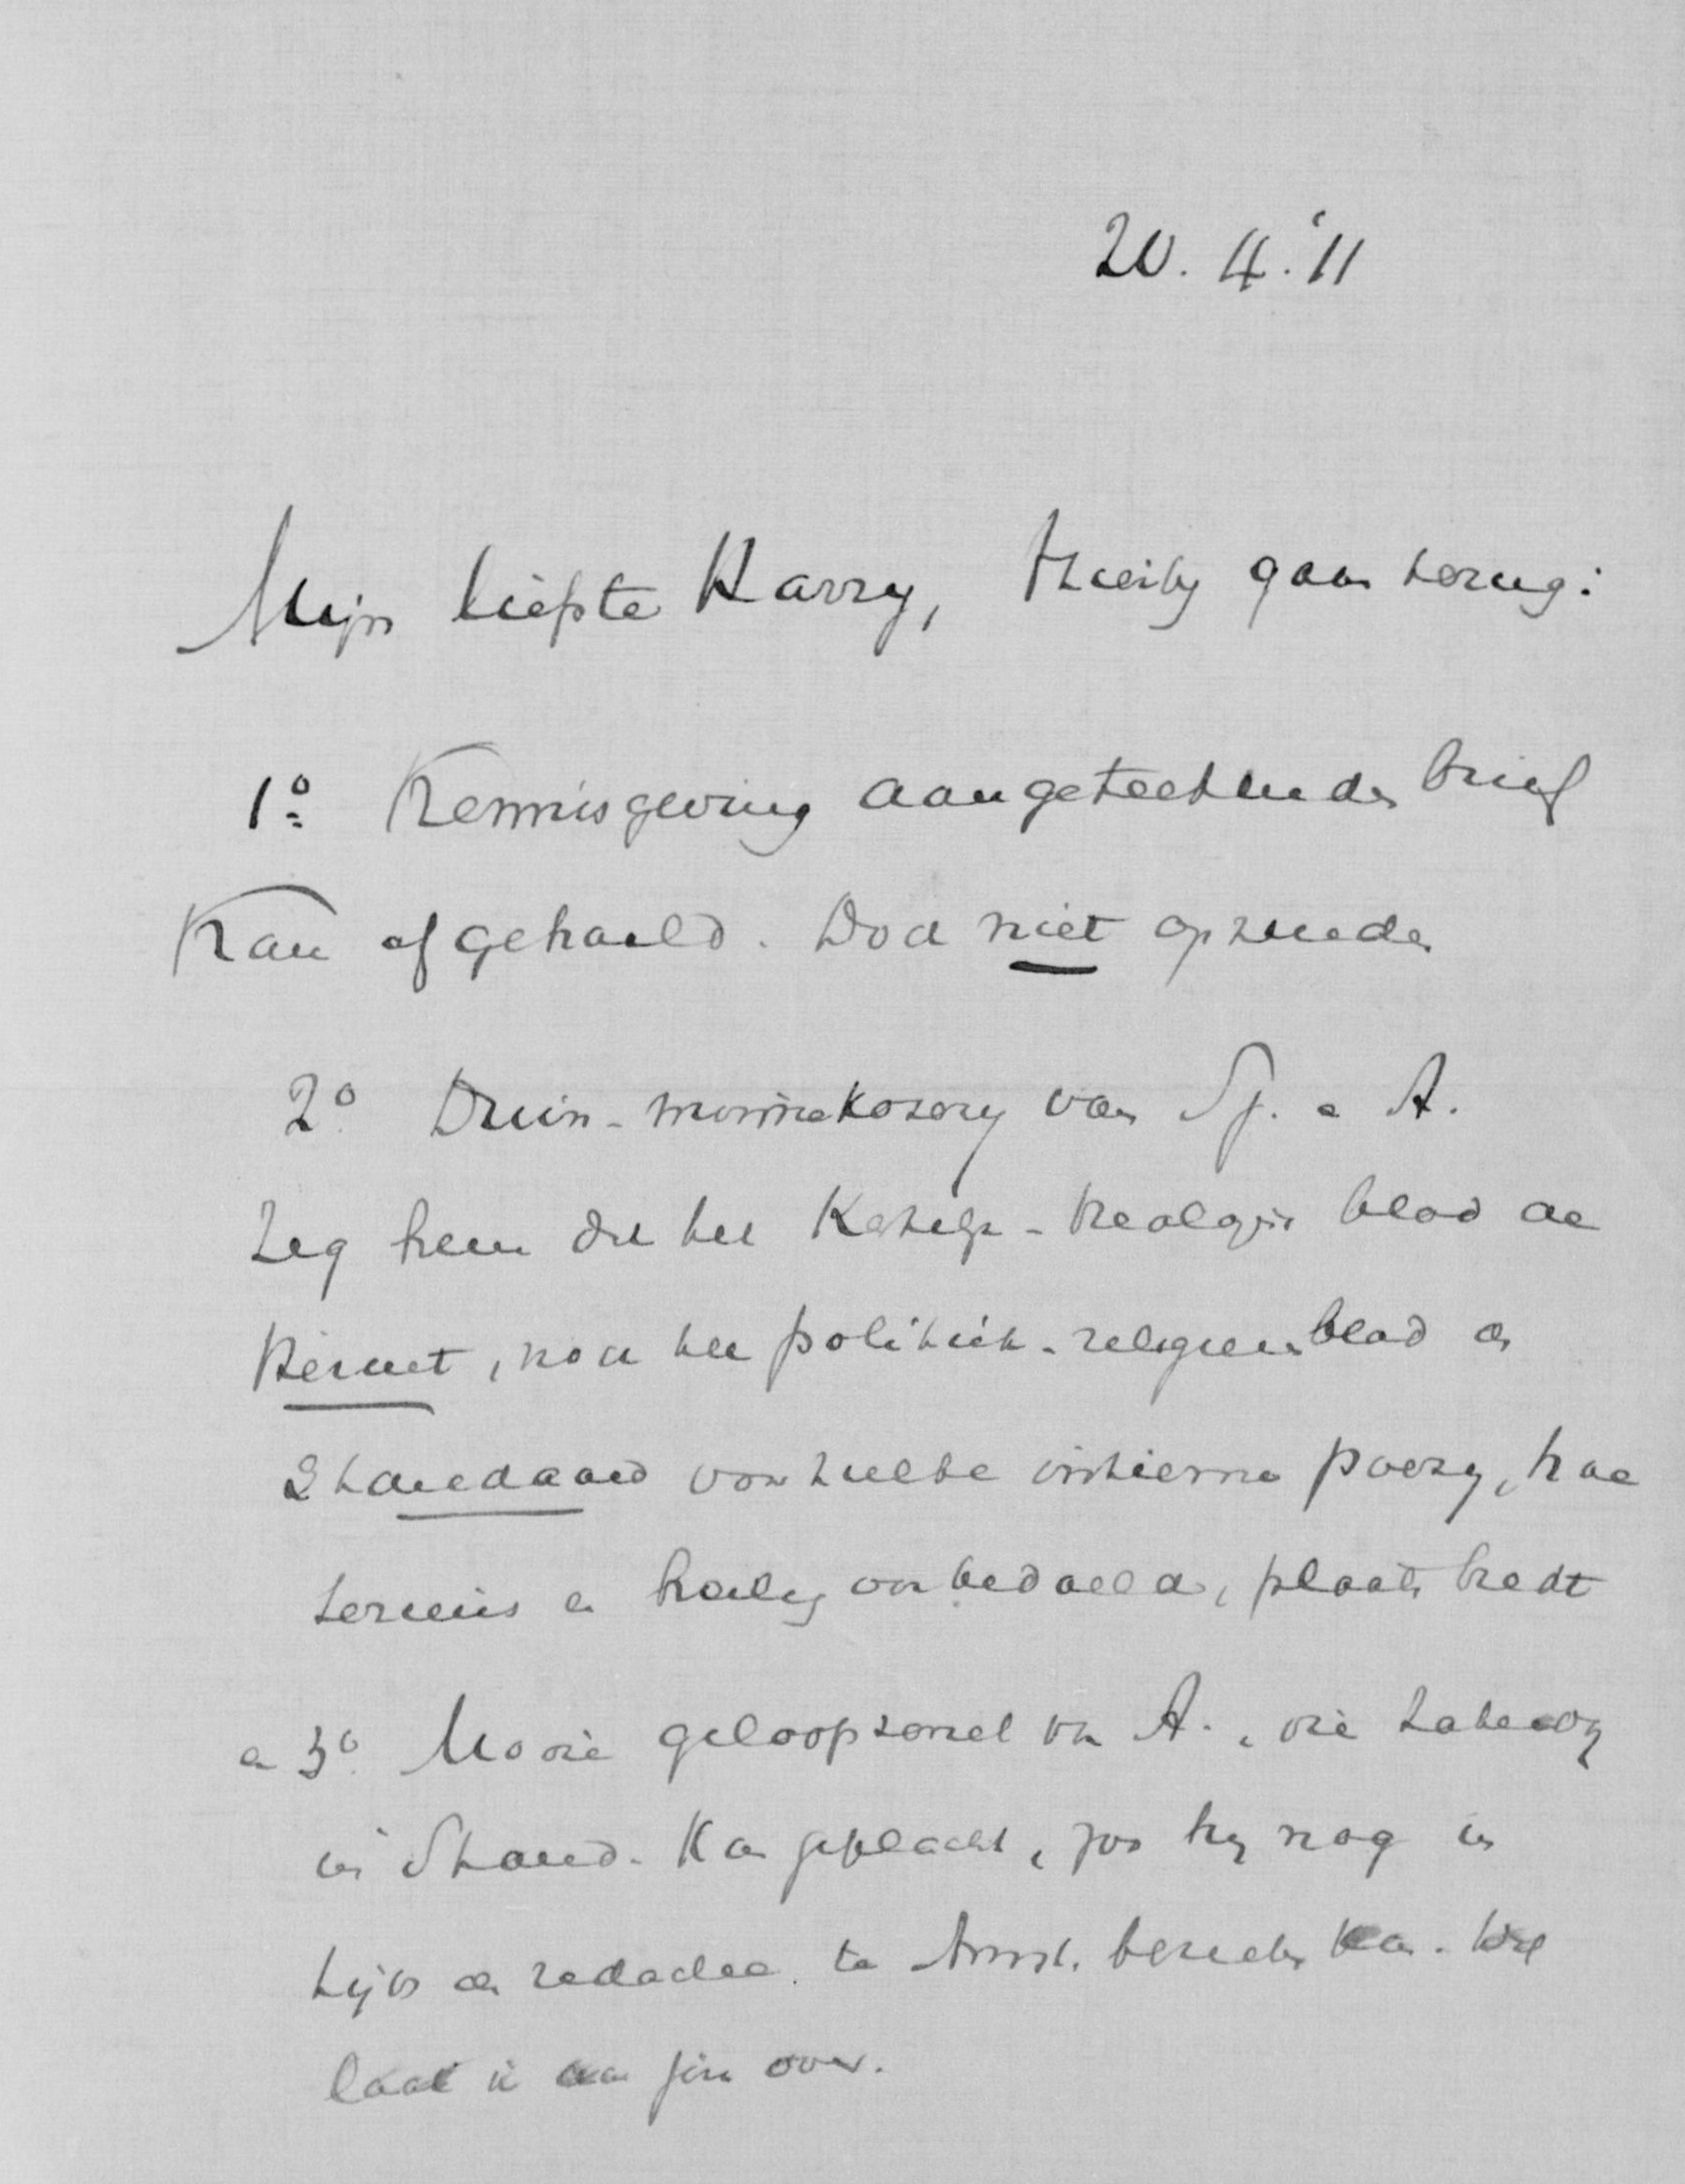 20.4.'11
Mijn liefste Harry, Hierbij gaan terug:
1º Kennisgeving aangeteekenden brief
Kan afgehaald. Doch niet opzenden
2º Duin-mannekozerij van Sp. e A.
Zeg hem dat het blad de
Heraut, noch het politiek-religieus blad de
Standaard voor zulke intieme poezy, hoe
serieus en heilig ook bedoeld, plaats biedt
en 3º Mooie geloopsonnet van A., die
in Stand. Kan geplaatst, zoo hij nog in
tijds de redactie te Amst. bereiken kan. Wel
laat ik aan jou over.